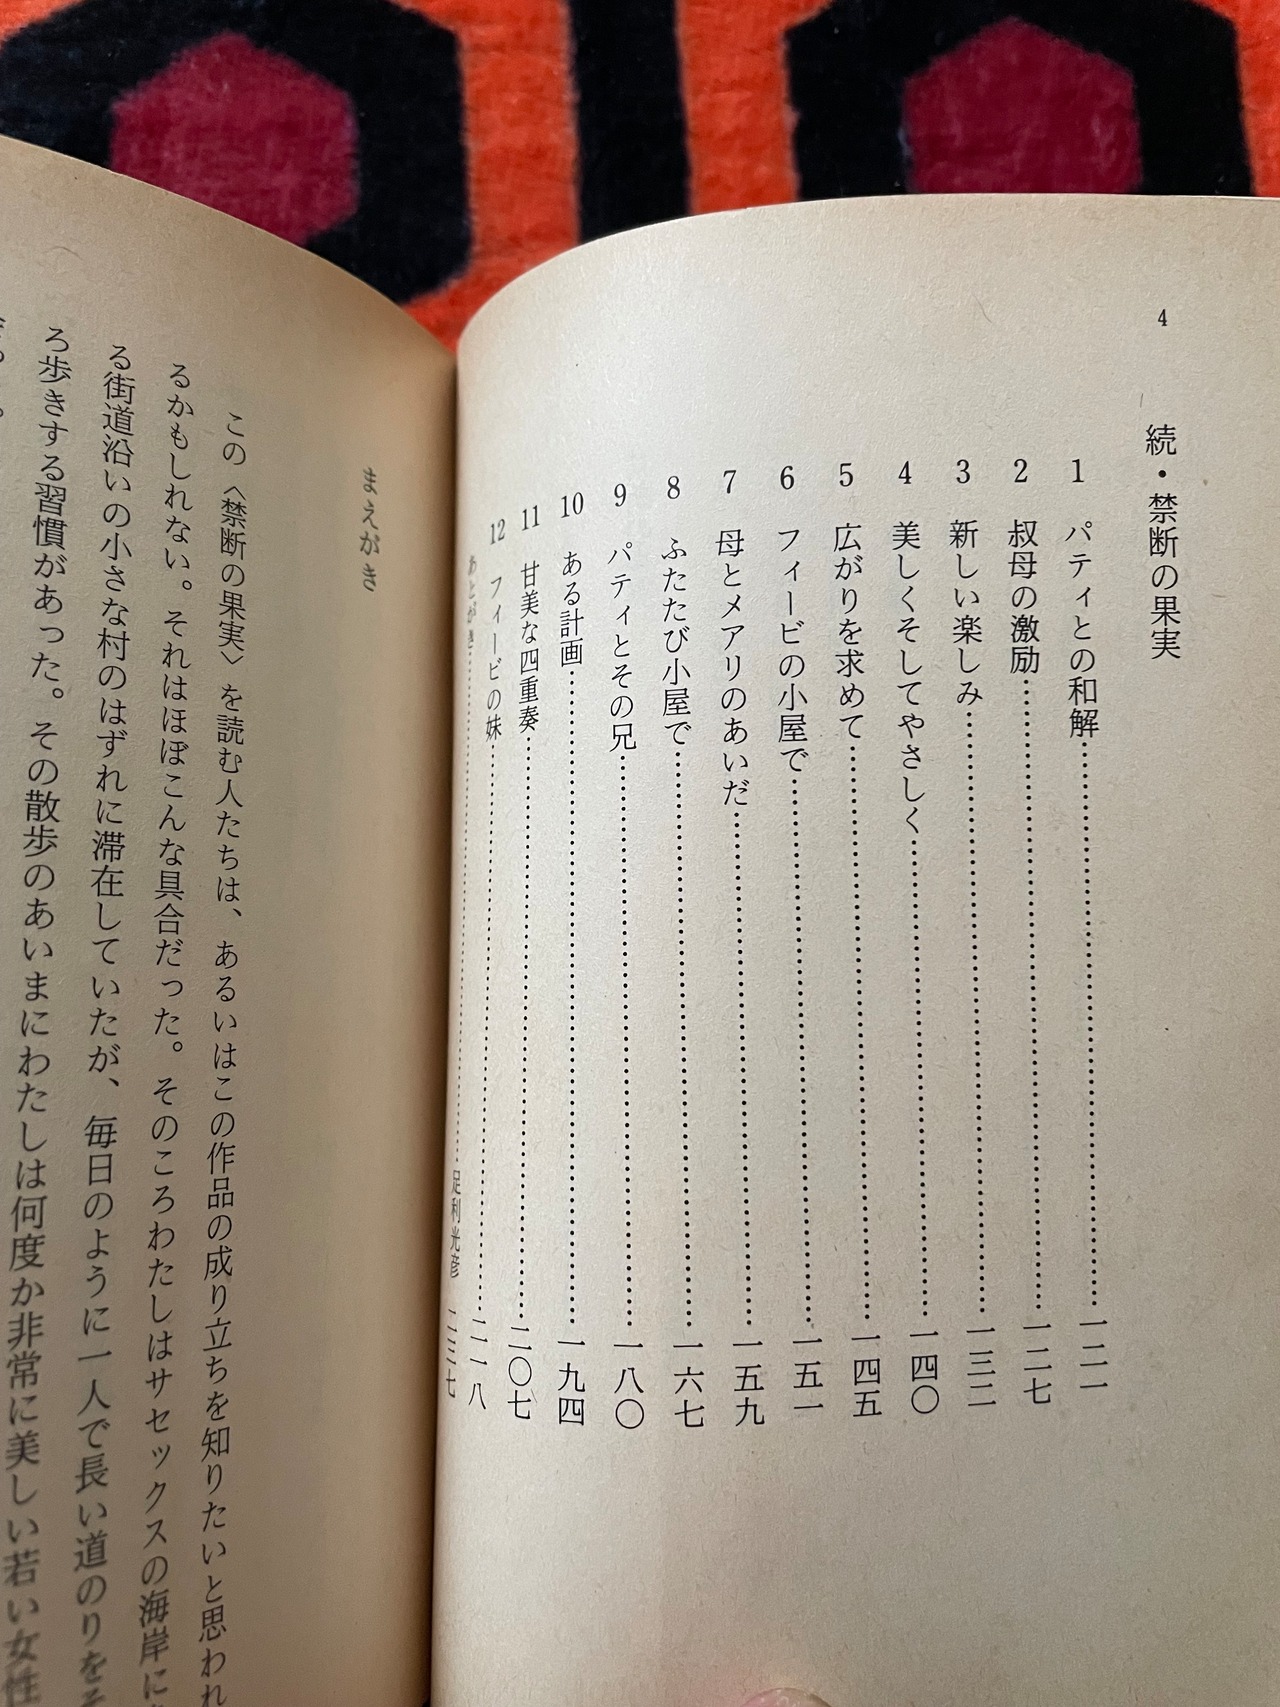 4
続・禁断の果実
1 パティとの和解……一二一
2 叔母の激励……一二七
3 新しい楽しみ……一三二
4 美しくそしてやさしく……一四〇
5 広がりを求めて……一四五
6 フィービの小屋で……一五一
7 母とメアリのあいだ……一五九
8 ふたたび小屋で……一六七
9 パティとその兄……一八〇
10 ある計画……一九四
11 甘美な四重奏……二〇七
12 フィービの妹……二一八
あとがき……足利光彦 二三七
まえがき
この〈禁断の果実〉を読む人たちは、あるいはこの作品の成り立ちを知りたいと思われ
るかもしれない。それはほぼこんな具合だった。そのころわたしはサセックスの海岸に
る街道沿いの小さな村のはずれに滞在していたが、毎日のように一人で長い道のりをそ
ろ歩きする習慣があった。その散歩のあいまにわたしは何度か非常に美しい若い女性